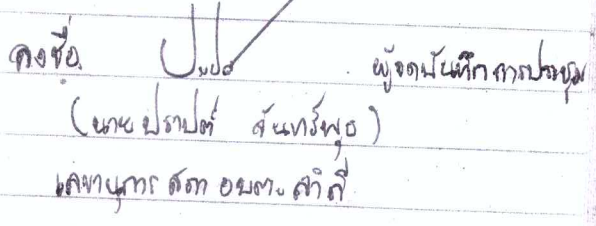 ลงชื่อ ผู้จดบันทึกการประชุม
(นายปราปต์ จันทร์พุธ)
เลขานุการ สภา อบต. สำลี